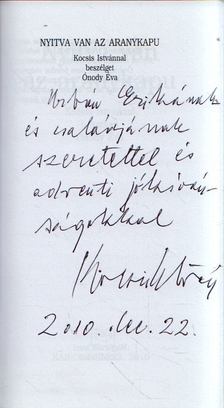 NYITVA VAN AZ ARANYKAPU
Kocsis Istvánnal
beszélget
Ónody Éva
Urbán Erikának
és családjának
szeretettel és
adventi jókíván-
ságokkal
Kocsis István
2010. dec. 22.